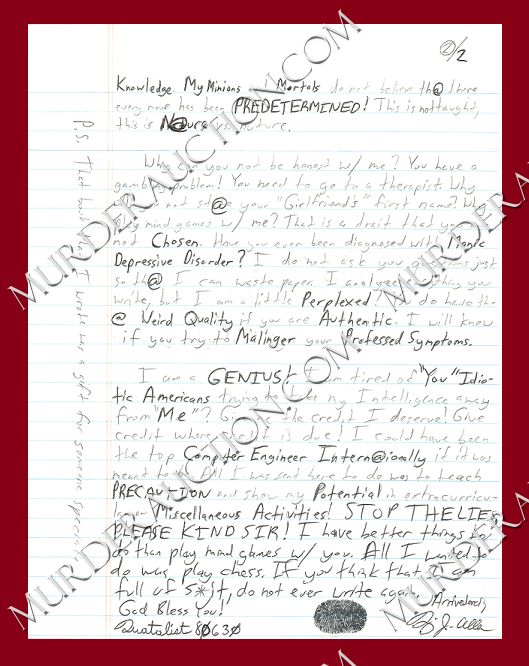 2/2
Knowledge. My Minions Mortals do not believe th@ there
every move has been PREDETERMINED! This is not taught,
this is Nature.
Why can you not be honest w/ me? You have a
gambling problem! You need to go to a therapist. Why
not st@e your "Girlfriend's" first name? Why
play mind games w/ me? That is a trait that you
not Chosen. Have you ever been diagnosed with Manic
Depressive Disorder? I do not ask you questions just
so th@ I can waste paper. I analyze everything you
write, but I am a little Perplexed? You do have th-
@ Weird Quality if you are Authentic. I will know
if you try to Malinger your Professed Symptoms.
I am a GENIUS! I am tired of "You" Idio-
tic Americans trying to take my Intelligence away
from "Me"? Give me the credit I deserve! Give
credit where credit is due! I could have been
the top Computer Engineer Intern@ionally if it was
meant to be. All I was sent here to do was to teach
PRECAUTION and show my Potential in extracurricu-
lar Miscellaneous Activities! STOP THE LIES
PLEASE KIND SIR! I have better things to
do than play mind games w/ you. All I wanted to
do was play chess. If you think that I am
full of S*it, do not ever write again.
God Bless You! Arrivederci,
P.S. That I wrote was a gift for someone special
MURDERAUCTION.COM
MURDERAUCTION.COM
MURDERAUCTION.COM
MURDERAUCTION.COM